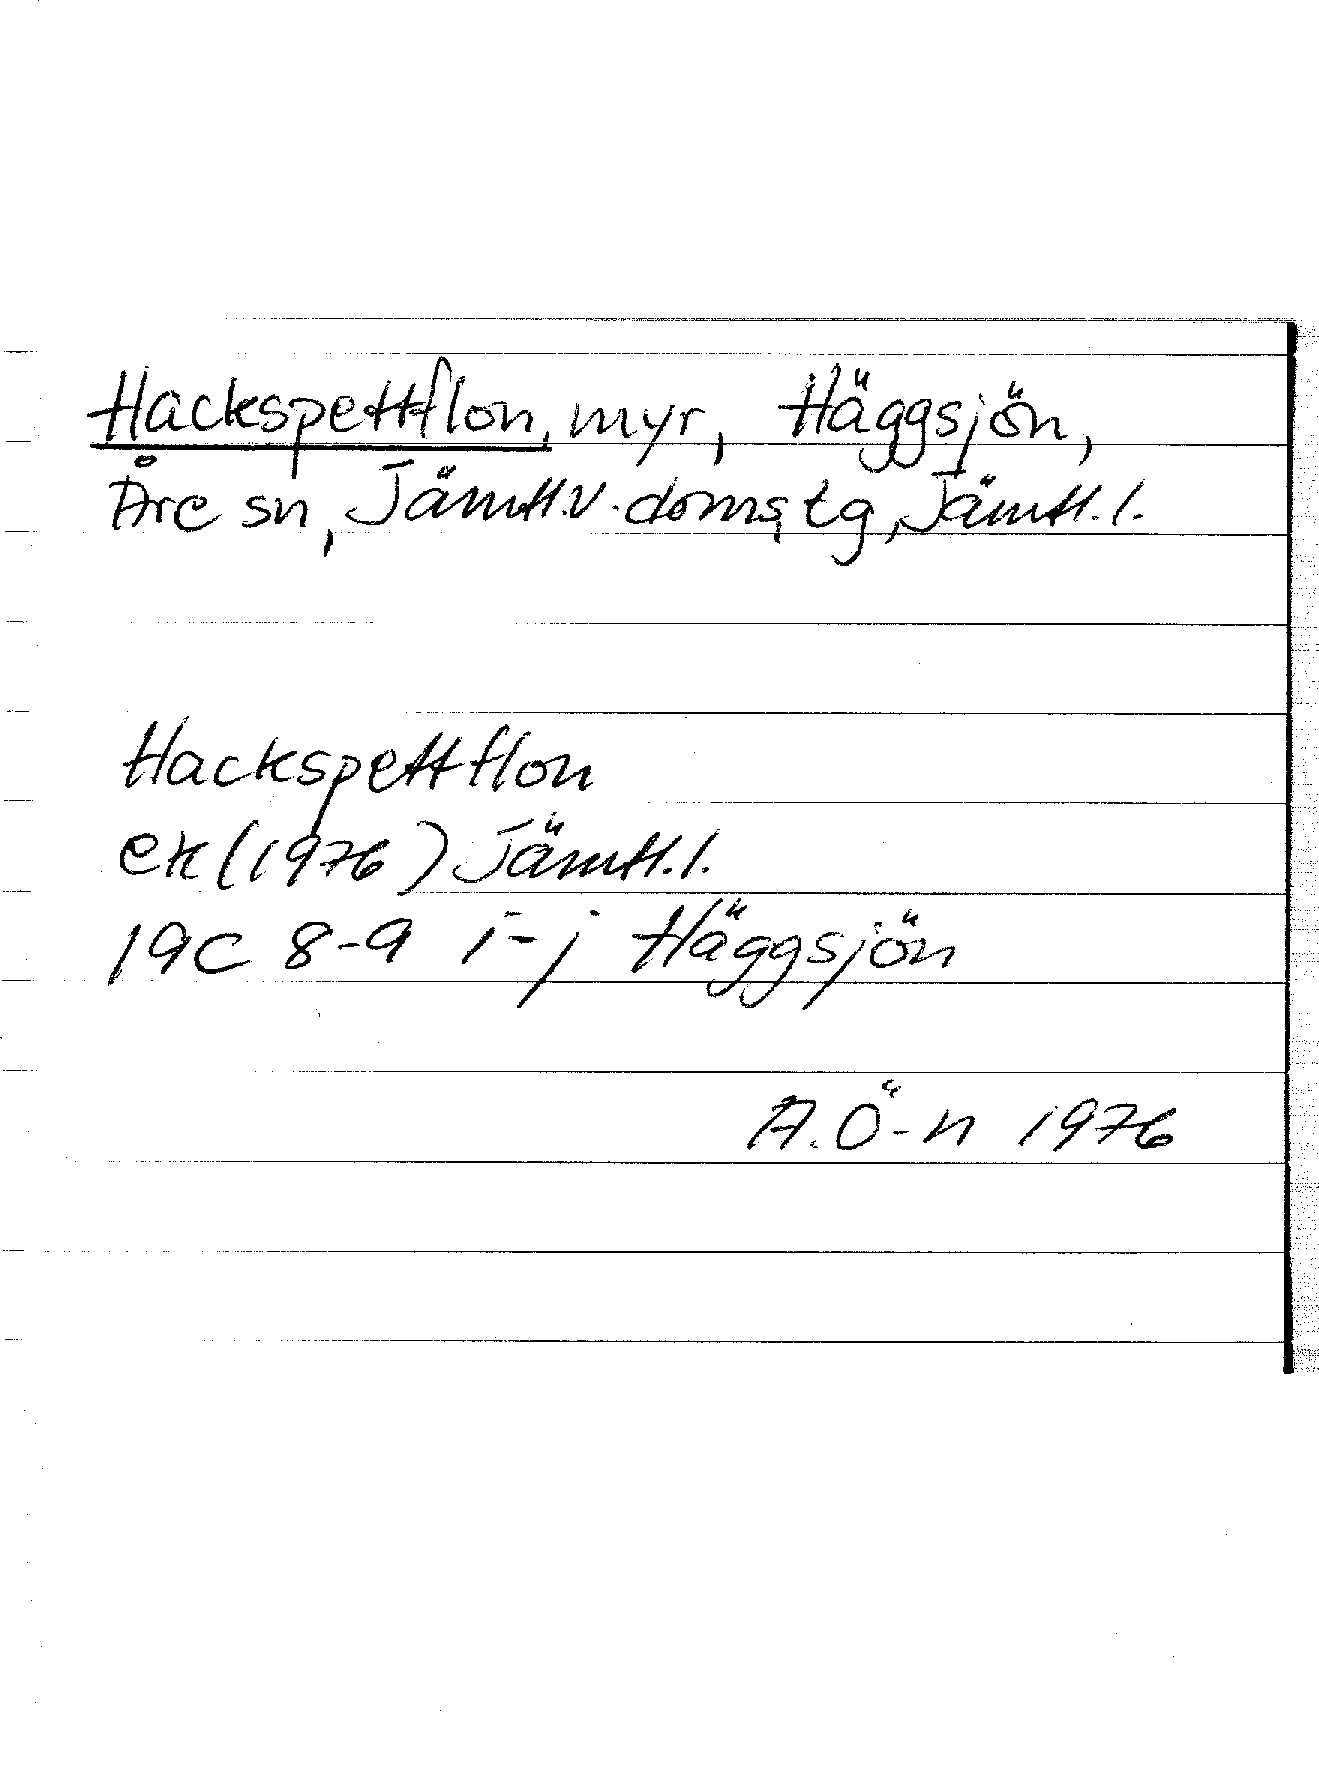 Hackspettflon, myr, Häggsjön,
Åre sn, Jämtl.v.doms, tg, Jämtl.l.
Hackspettflon
ek (1976) Jämtl.l.
19C 8-9 i-j Häggsjön
A.Ö-n 1976